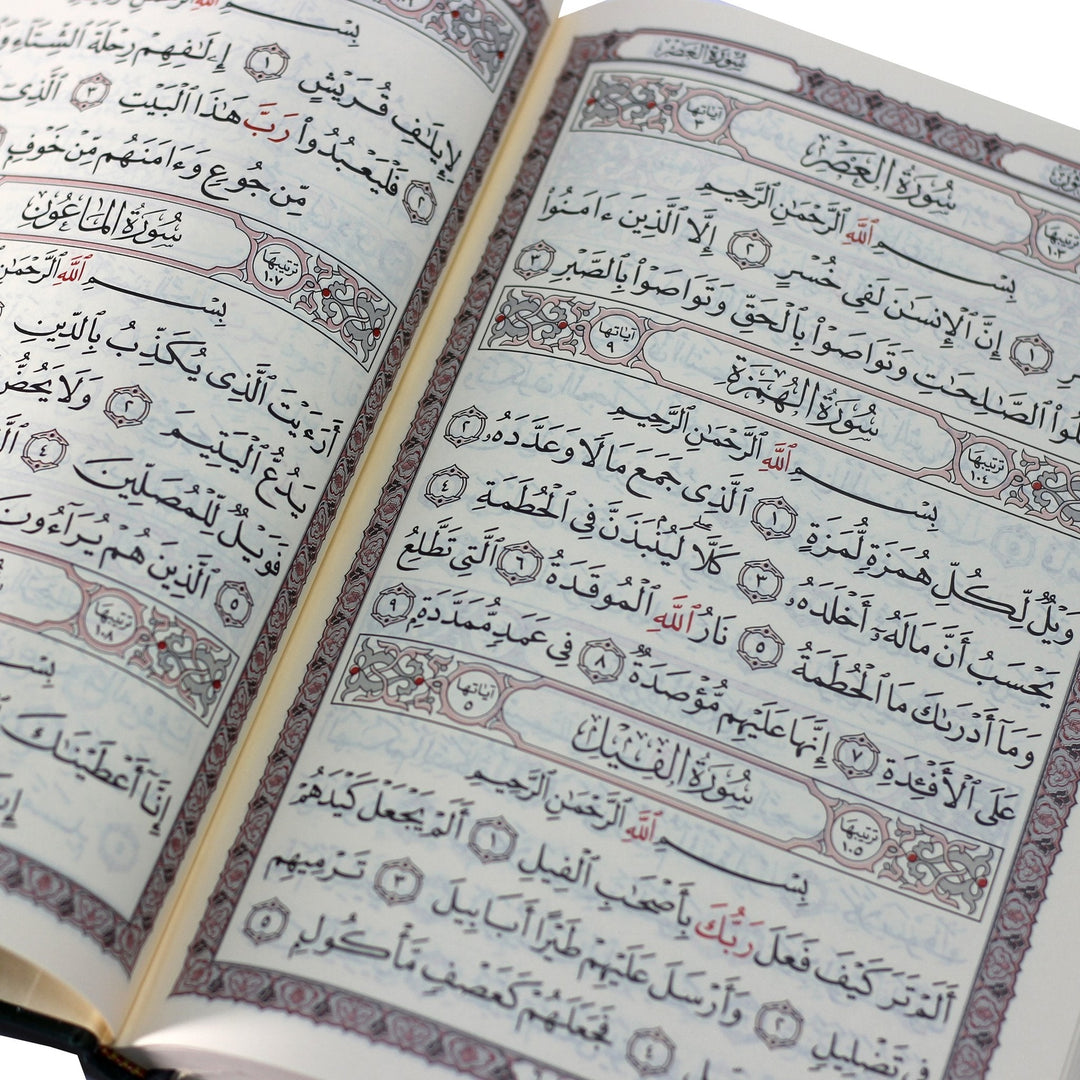 سُورَةُ العَصْرِ
ترتيبها ١٠٣
سُورَةُ العَصْرِ
آياتها ٣
بِسْمِ ٱللَّهِ ٱلرَّحْمَٰنِ ٱلرَّحِيمِ
١ إِنَّ ٱلْإِنسَٰنَ لَفِى خُسْرٍ ٢ إِلَّا ٱلَّذِينَ ءَامَنُوا۟
ٱلصَّٰلِحَٰتِ وَتَوَاصَوْا۟ بِٱلْحَقِّ وَتَوَاصَوْا۟ بِٱلصَّبْرِ ٣
ترتيبها ١٠٤
سُورَةُ الهُمَزَةِ
آياتها ٩
بِسْمِ ٱللَّهِ ٱلرَّحْمَٰنِ ٱلرَّحِيمِ
وَيْلٌ لِّكُلِّ هُمَزَةٍ لُّمَزَةٍ ١ ٱلَّذِى جَمَعَ مَالًا وَعَدَّدَهُۥ ٢
يَحْسَبُ أَنَّ مَالَهُۥٓ أَخْلَدَهُۥ ٣ كَلَّا ۖ لَيُنۢبَذَنَّ فِى ٱلْحُطَمَةِ ٤
وَمَآ أَدْرَىٰكَ مَا ٱلْحُطَمَةُ ٥ نَارُ ٱللَّهِ ٱلْمُوقَدَةُ ٦ ٱلَّتِى تَطَّلِعُ
عَلَى ٱلْأَفْـِٔدَةِ ٧ إِنَّهَا عَلَيْهِم مُّؤْصَدَةٌ ٨ فِى عَمَدٍ مُّمَدَّدَةٍۭ ٩
ترتيبها ١٠٥
سُورَةُ الفِيلِ
آياتها ٥
بِسْمِ ٱللَّهِ ٱلرَّحْمَٰنِ ٱلرَّحِيمِ
أَلَمْ تَرَ كَيْفَ فَعَلَ رَبُّكَ بِأَصْحَٰبِ ٱلْفِيلِ ١ أَلَمْ يَجْعَلْ كَيْدَهُمْ
فِى تَضْلِيلٍ ٢ وَأَرْسَلَ عَلَيْهِمْ طَيْرًا أَبَابِيلَ ٣ تَرْمِيهِم
٤ فَجَعَلَهُمْ كَعَصْفٍ مَّأْكُولٍۭ ٥
بِسْمِ ٱللَّهِ
لِإِيلَٰفِ قُرَيْشٍ ١ إِۦلَٰفِهِمْ رِحْلَةَ ٱلشِّتَآءِ
٢ فَلْيَعْبُدُوا۟ رَبَّ هَٰذَا ٱلْبَيْتِ ٣ ٱلَّذِىٓ
مِّن جُوعٍ وَءَامَنَهُم مِّنْ خَوْفٍۭ
ترتيبها ١٠٧
سُورَةُ المَاعُونِ
بِسْمِ ٱللَّهِ ٱلرَّحْمَٰنِ
أَرَءَيْتَ ٱلَّذِى يُكَذِّبُ بِٱلدِّينِ
يَدُعُّ ٱلْيَتِيمَ ٢ وَلَا يَحُضُّ
فَوَيْلٌ لِّلْمُصَلِّينَ ٤
٥ ٱلَّذِينَ هُمْ يُرَآءُونَ
ترتيبها ١٠٨
بِسْمِ
إِنَّآ أَعْطَيْنَٰكَ